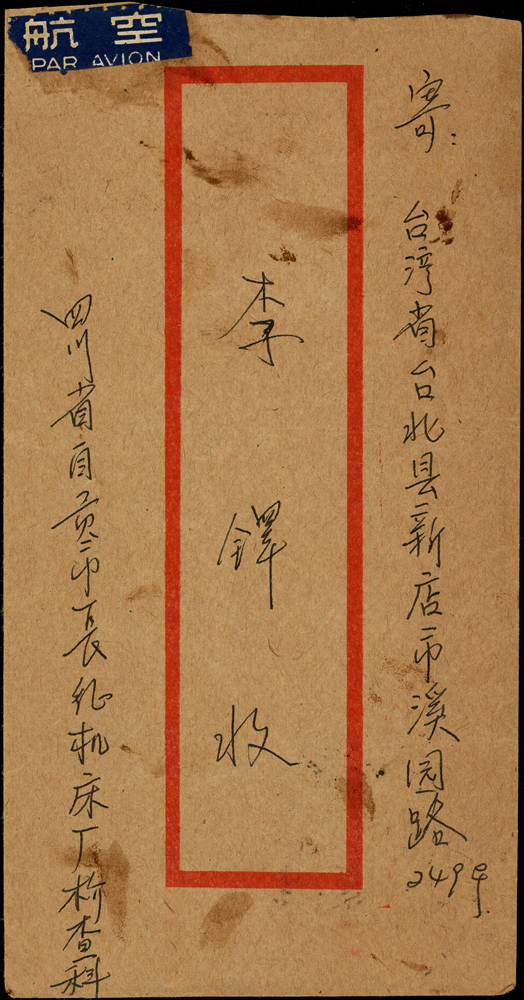 航空
PAR AVION
寄：
台湾省台北县新店市溪园路249号
李铎收
四川省自贡市长征机床厂检查科